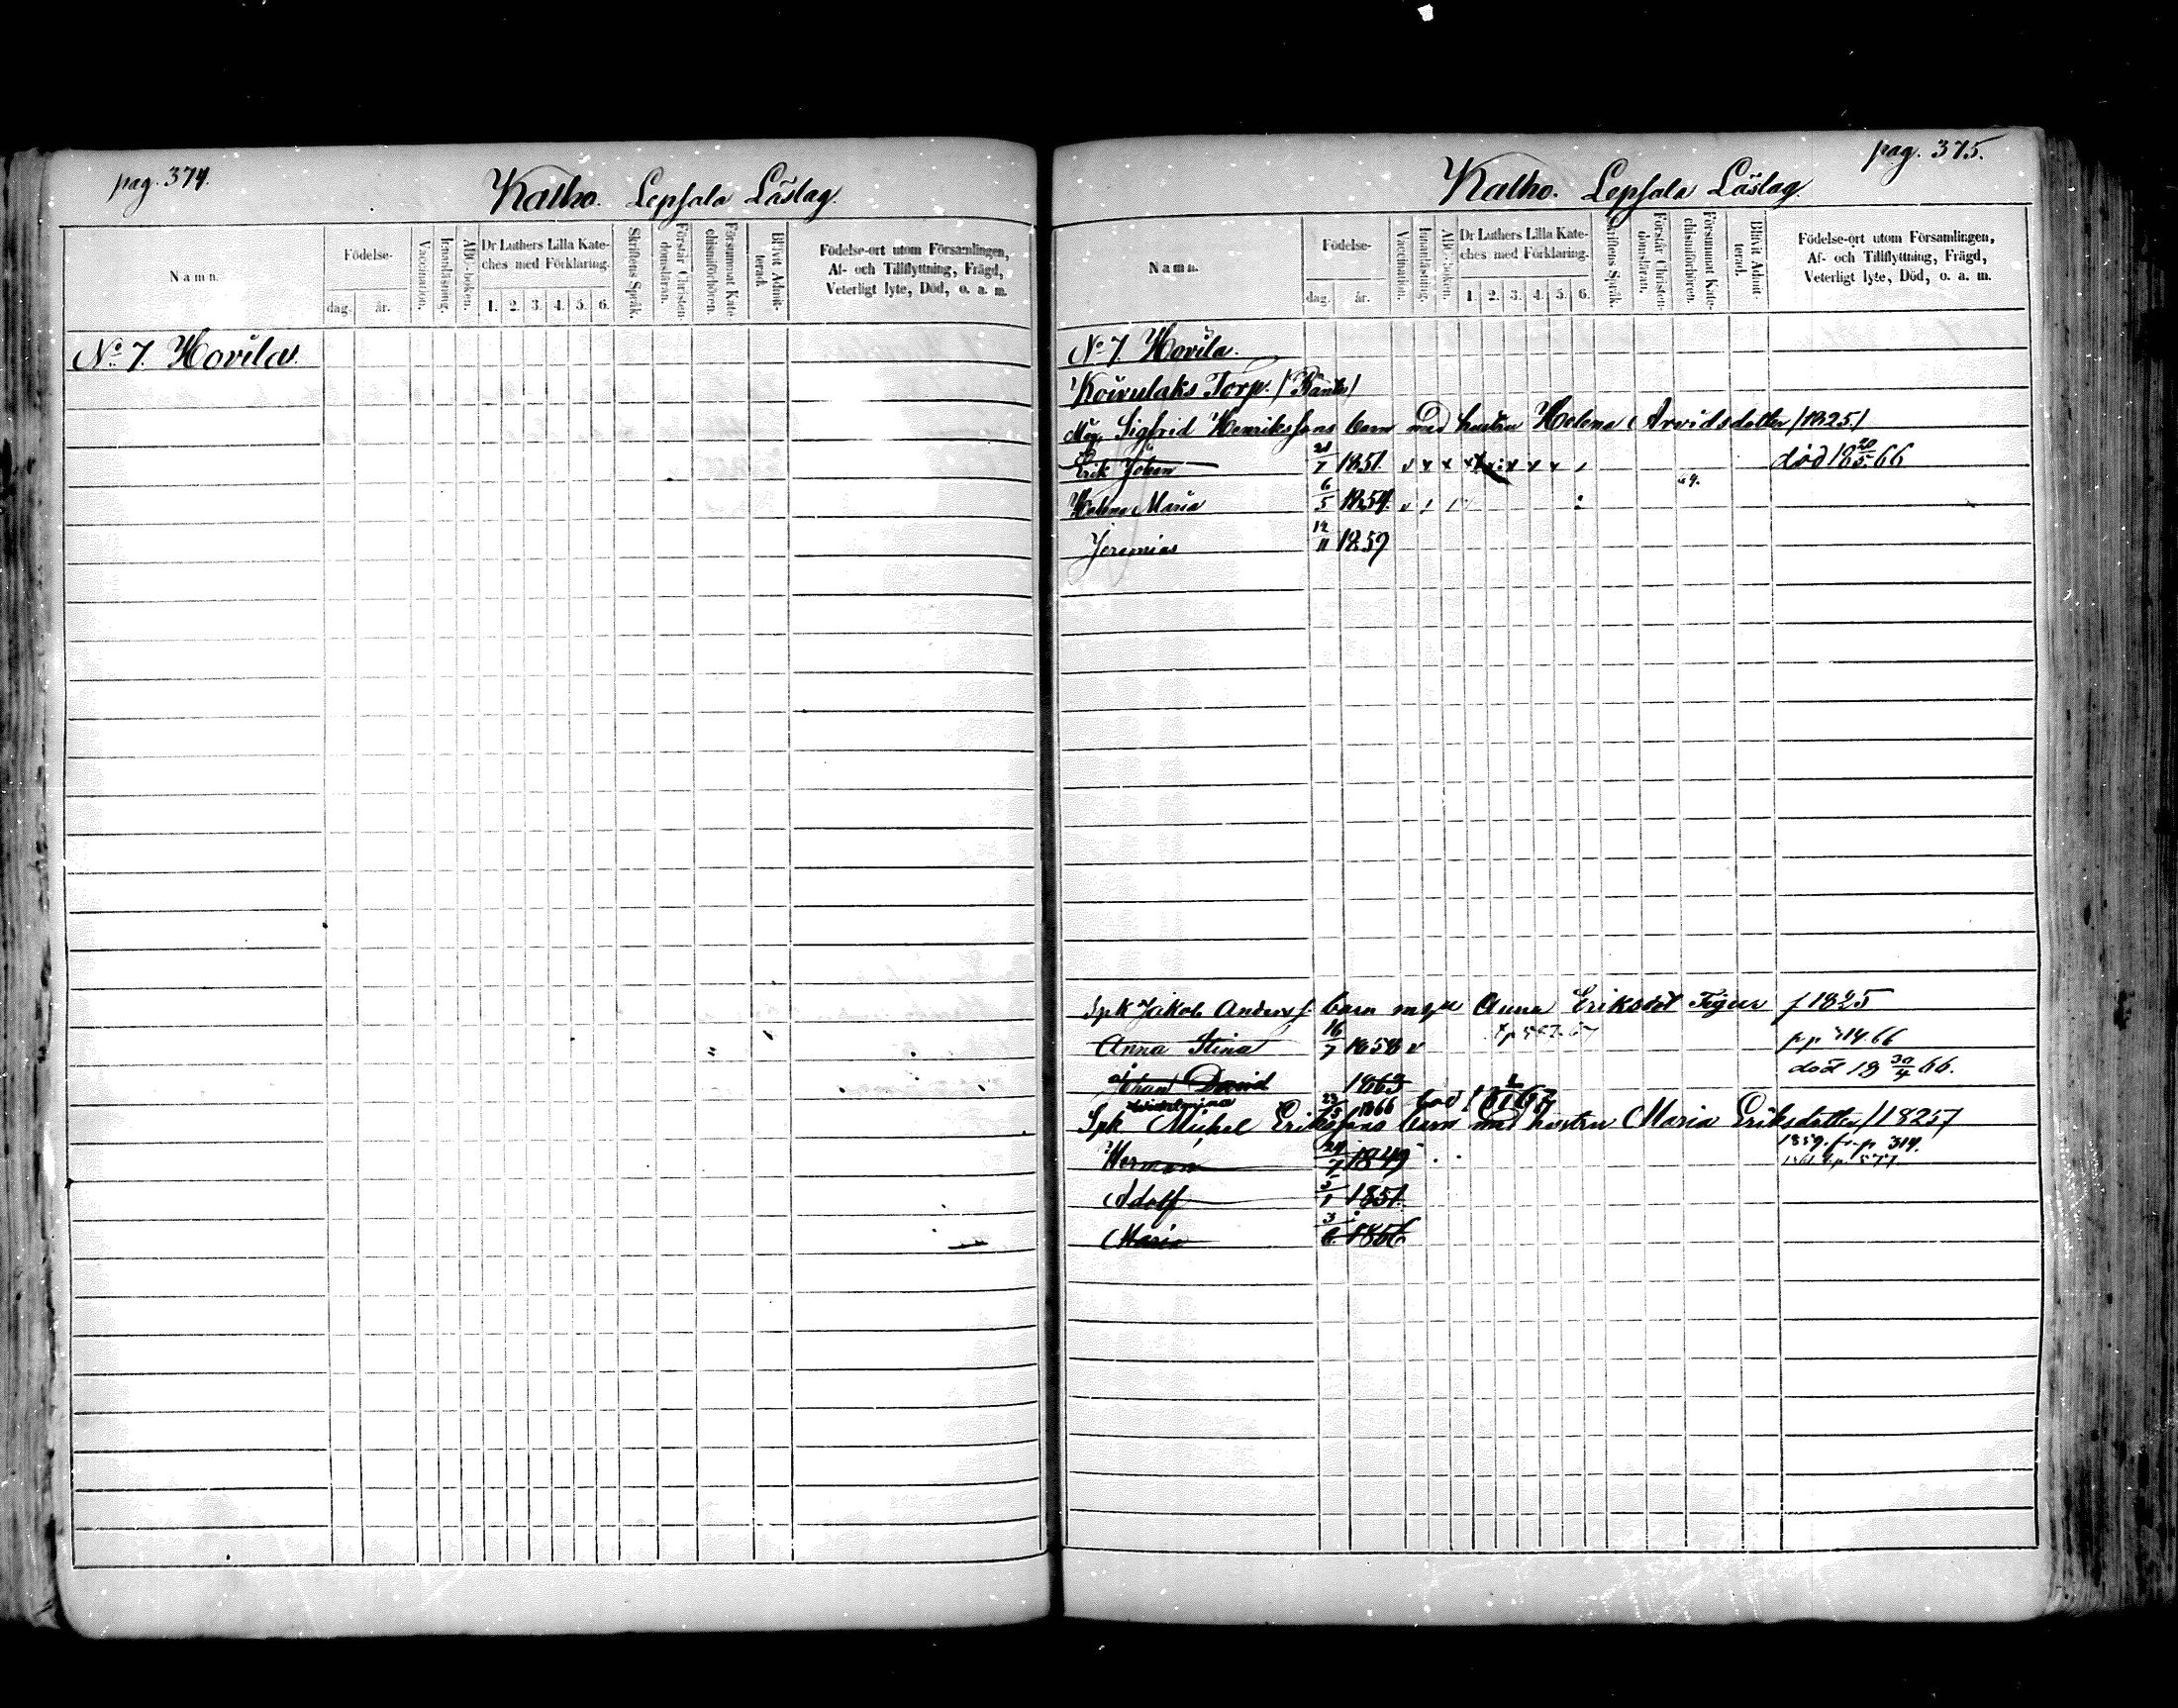 pag. 374.
Katho. Lepsala Läslag.
Namn.
Födelse-
dag. år.
Vaccination.
Innanläsning.
ABC-boken.
Dr Luthers Lilla Kate-
ches med Förklaring.
1. 2. 3. 4. 5. 6.
Skriftens Språk.
Förstår Christen-
domsläran.
Försummat Kate-
chismiförhören.
Blifvit Admit-
terad.
Födelse-ort utom Församlingen,
Af- och Tillflyttning, Frägd,
Veterligt lyte, Död, o. a. m.
No 7. Hovila.
pag. 375.
Katho. Lepsala Läslag.
Namn.
Födelse-
dag. år.
Vaccination.
Innanläsning.
ABC-boken.
Dr Luthers Lilla Kate-
ches med Förklaring.
1. 2. 3. 4. 5. 6.
Skriftens Språk.
Förstår Christen-
domsläran.
Försummat Kate-
chismiförhören.
Blifvit Admit-
terad.
Födelse-ort utom Församlingen,
Af- och Tillflyttning, Frägd,
Veterligt lyte, Död, o. a. m.
No 7. Hovila.
Koivulaks Torp.
Måg. Sigfrid Henrikssons barn med hustru Helena Arvidsdotter /1825/
Erik Johan 21/7 1851. v x x x x x x x död 18 20/5 66
Helena Maria 6/5 1854. v
Jeremias 12/11 1859
Spk Jakob Anderss. barn m hu Anna Eriksdot Tiger f 1825
Anna Stina 16/7 1858 v pp 314.66
Johan David 1863 död 18 30/4 66.
Wilhelmina 23/5 1866
Spk Michel Erikssons barn med hustru Maria Eriksdotter /1825/
Herman 24/7 1849 1859. fr. p 314.
Adolf 5/1 1851.
Maria 3/6 1856